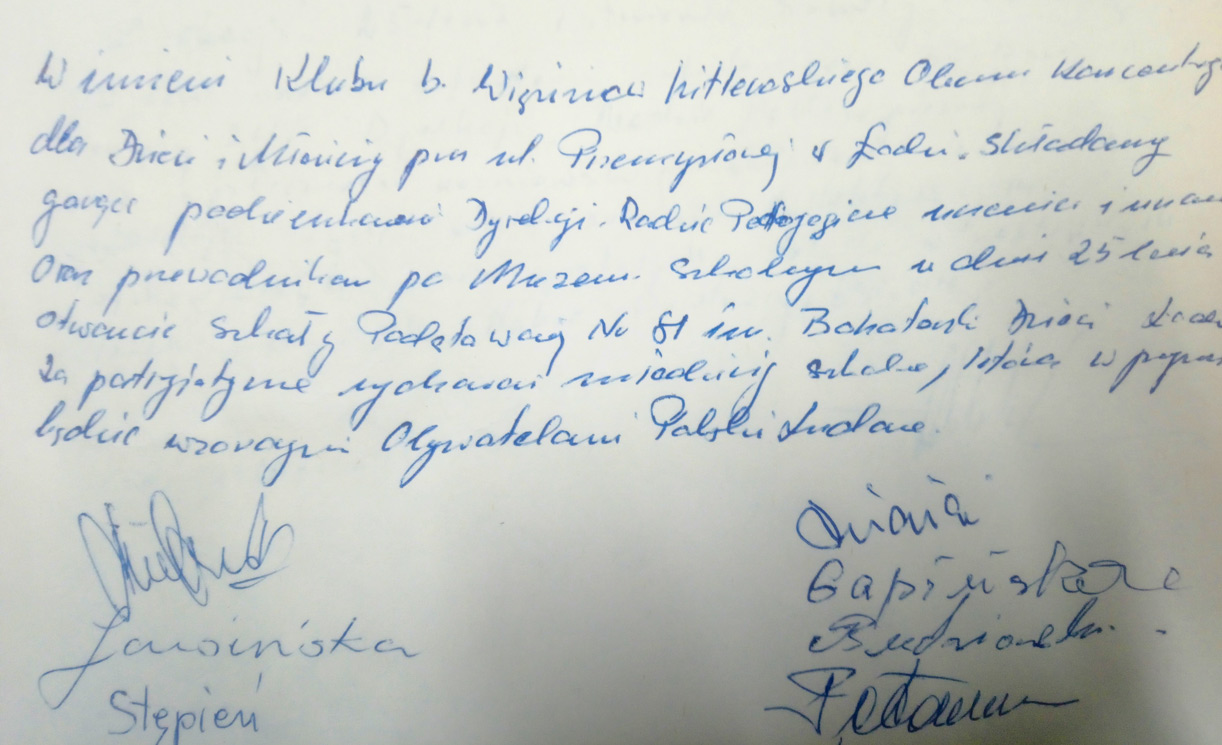 W imieni Klubu b. Więźniów hitlerowskiego Obozu Koncentracyj
dla Dzieci i Młodzieży przy ul. Przemysłowej w Łodzi. Składamy
gorące podziękowani Dyrekcji. Radzie Pedagogicznej uczenicą i uczniom
Oraz przewodnikom po Muzeum Szkolnym w dniu 25 lecia
otwarcie Szkoły Podstawowej Nr 81 im. Bohaterski Dzieci Łodzi
Za patryjotyczne wychowani młodzieży szkolne, która w przyszł
będzie wzorowymi Obywatelami Polski Ludowe.
Jarosińska
Stępień
Gapińska